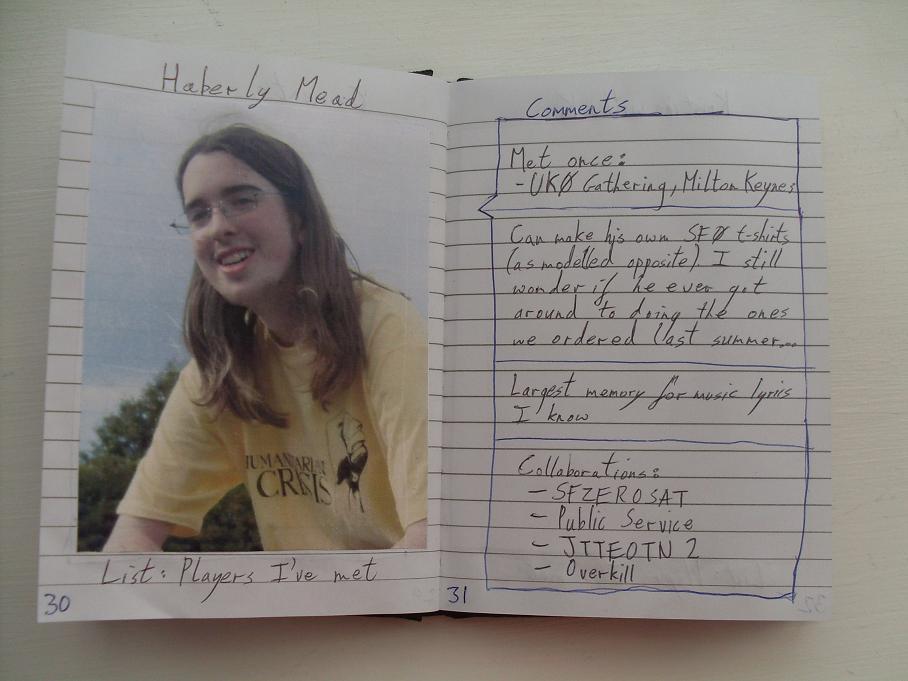 Haberly Mead
HUMANITARIAN
CRISIS
List: Players I've met
30
Comments
Met once:
- UKØ Gathering, Milton Keynes
Can make his own SFØ t-shirts
(as modelled opposite). I still
wonder if he ever got
around to doing the ones
we ordered last summer...
Largest memory for music lyrics
I know
Collaborations:
- SFZEROSAT
- Public Service
- JTTEOTN 2
- Overkill
31
32